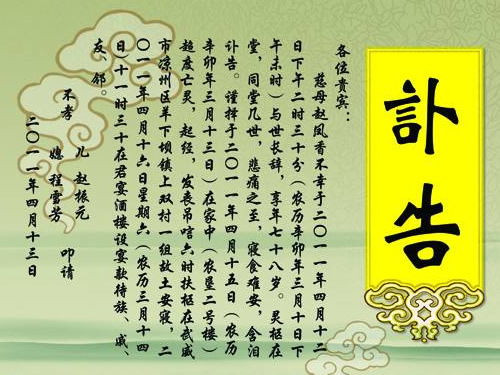 訃告
各位贵宾：
慈母赵凤香不幸于二〇一一年四月十二
日下午二时三十分（农历辛卯年三月十日下
午未时）与世长辞，享年七十八岁。灵柩在
堂，同堂几世，悲痛之至，寝食难安，含泪
讣告。谨择于二〇一一年四月十五日（农历
辛卯年三月十三日）在家中（农垦二号楼）
超度亡灵，赵经，发丧吊唁六时扶柩在武威
市凉州区羊下坝镇上双村一组故土安寝，二
〇一一年四月十六日星期六（农历三月十四
日）十一时三十在君宴酒楼设宴款待族、戚、
友、邻。
不孝 儿 赵振元
媳 程雪芳 叩请
二〇一一年四月十三日